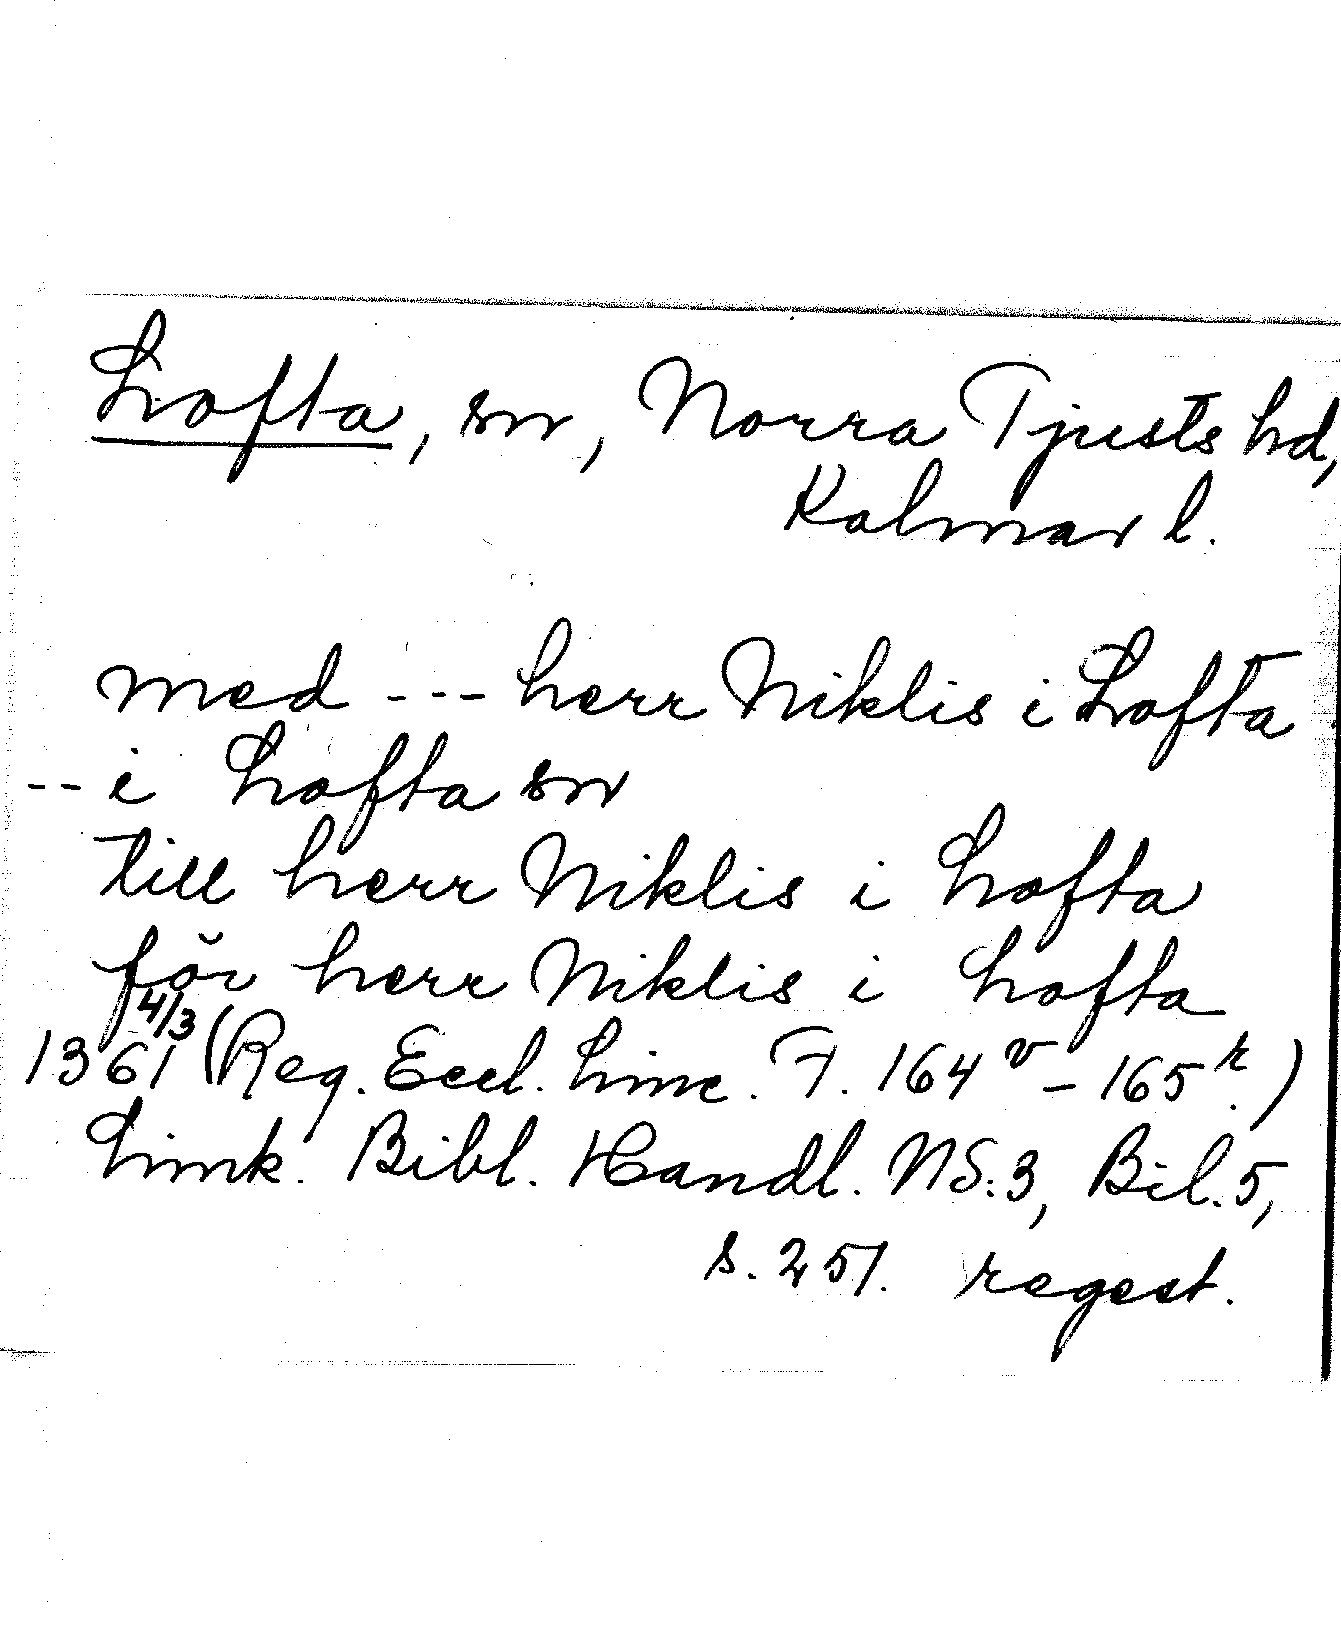 Lofta, sn, Norra Tjusts hd,
Kalmar l.
med --- herr Niklis i Lofta
-- i Lofta sn
till herr Niklis i Lofta
för herr Niklis i Lofta
1361 4/3 (Reg. Eccl. Linc. F. 164 v - 165 r.)
Link. Bibl. Handl. NS:3, Bil. 5,
s. 251. regest.